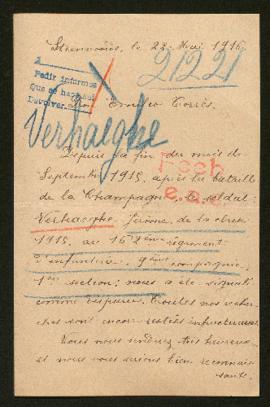 le 22 Mai 1916
21221
Pedir informes
Que se haga
Devolver.
Verhaeghe
Depuis la fin du mois de
Septembre 1915, après la bataille
de la Champagne, le soldat
Verhaeghe Jérome, de la classe
1915, au 162ème régiment
d'infanterie, 9ème compagnie,
1ère section; nous a été signalé
comme disparu. Toutes nos recher-
ches sont encor restées infructueuses.
Vous nous rendriez très heureux
et nous vous serions bien reconnais-
sants.